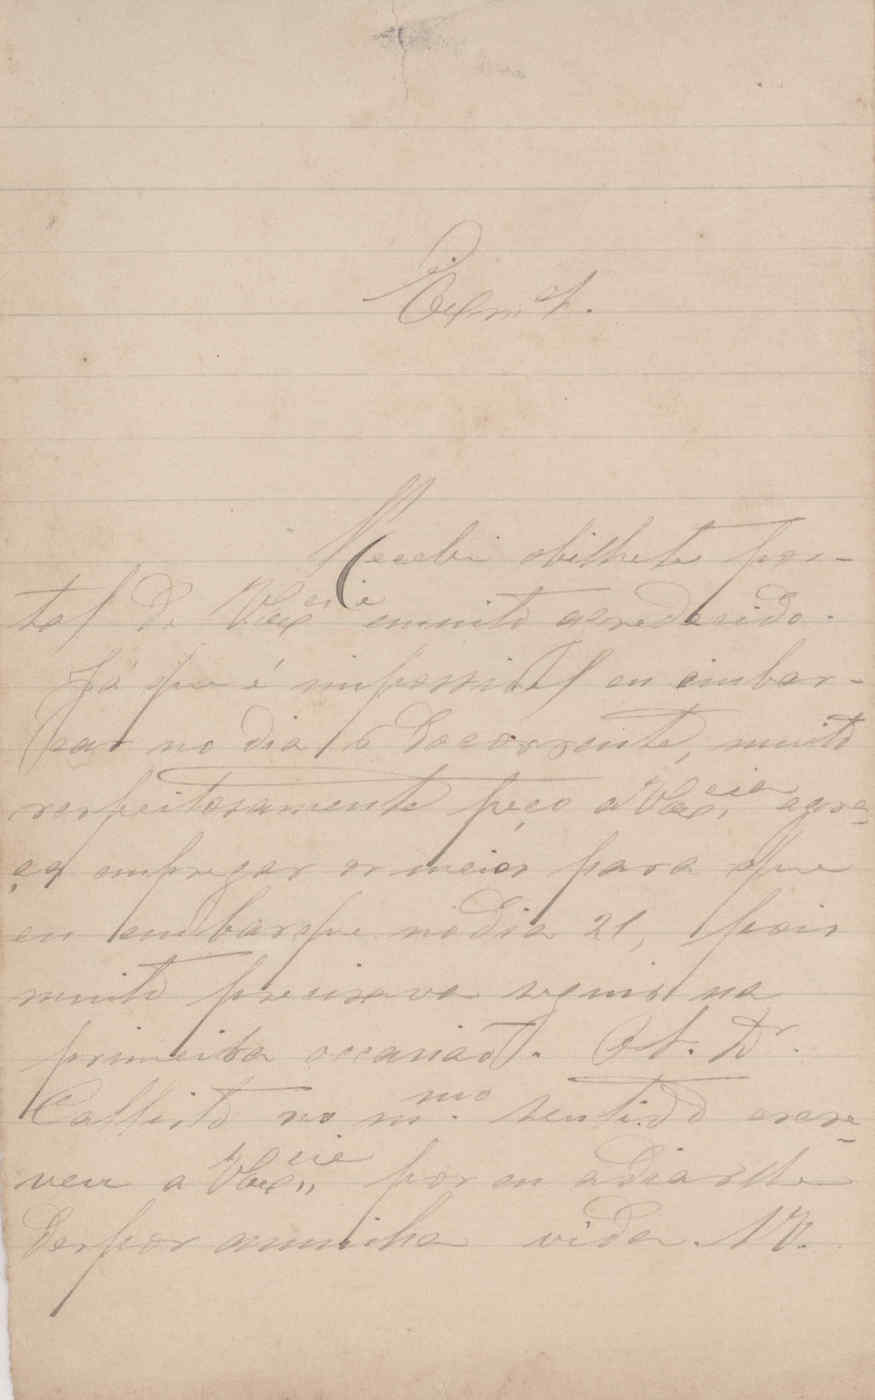 Exmº Sr.
Recebi obilhete pos-
tal de VExcia muito agredecido.
Já que é impossivel eu embar-
car no dia 6 do corrente, muito
respeitosamente peço a VExcia agra-
ça empregar os meios para que
eu embarque no dia 21, pois
muito precisava seguir na
primeira occasião. O Sr. Dr.
Callisto no m.mo sentido escre-
veu a VExcia por eu
dispor aminha vida. N.